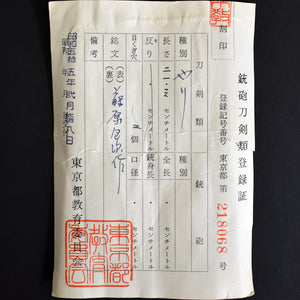 銃砲刀剣類登録証
登録記号番号 東京都 第 218068 号
割印
刀剣類
種別 やり
長さ 二一・三 センチメートル
反り ・ センチメートル
目くぎ穴 個
銘文 (表) 藤原 作
(裏)
備考
銃砲
種別
全長 ・ センチメートル
銃身長 ・ センチメートル
口径 ・ センチメートル
昭和五拾五年弐月拾八日
東京都教育委員会